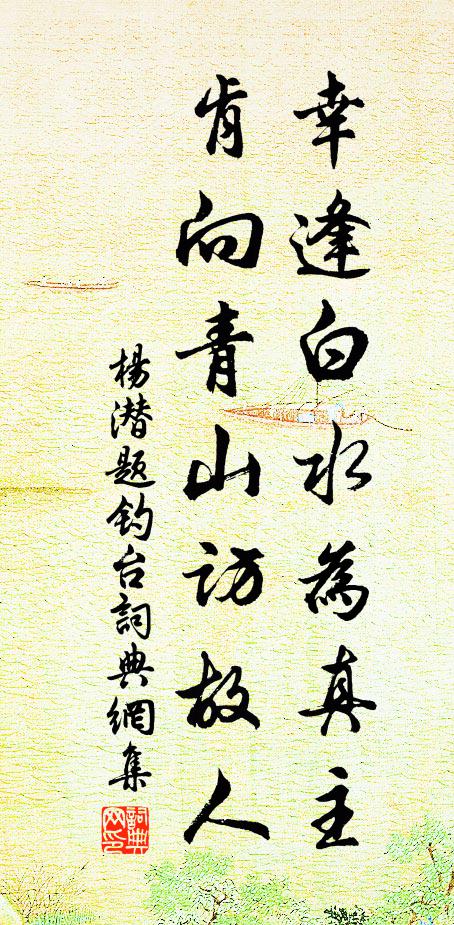 幸逢白水為真主
肯向青山訪故人
楊潛題釣台詞典網集
詞典
网印